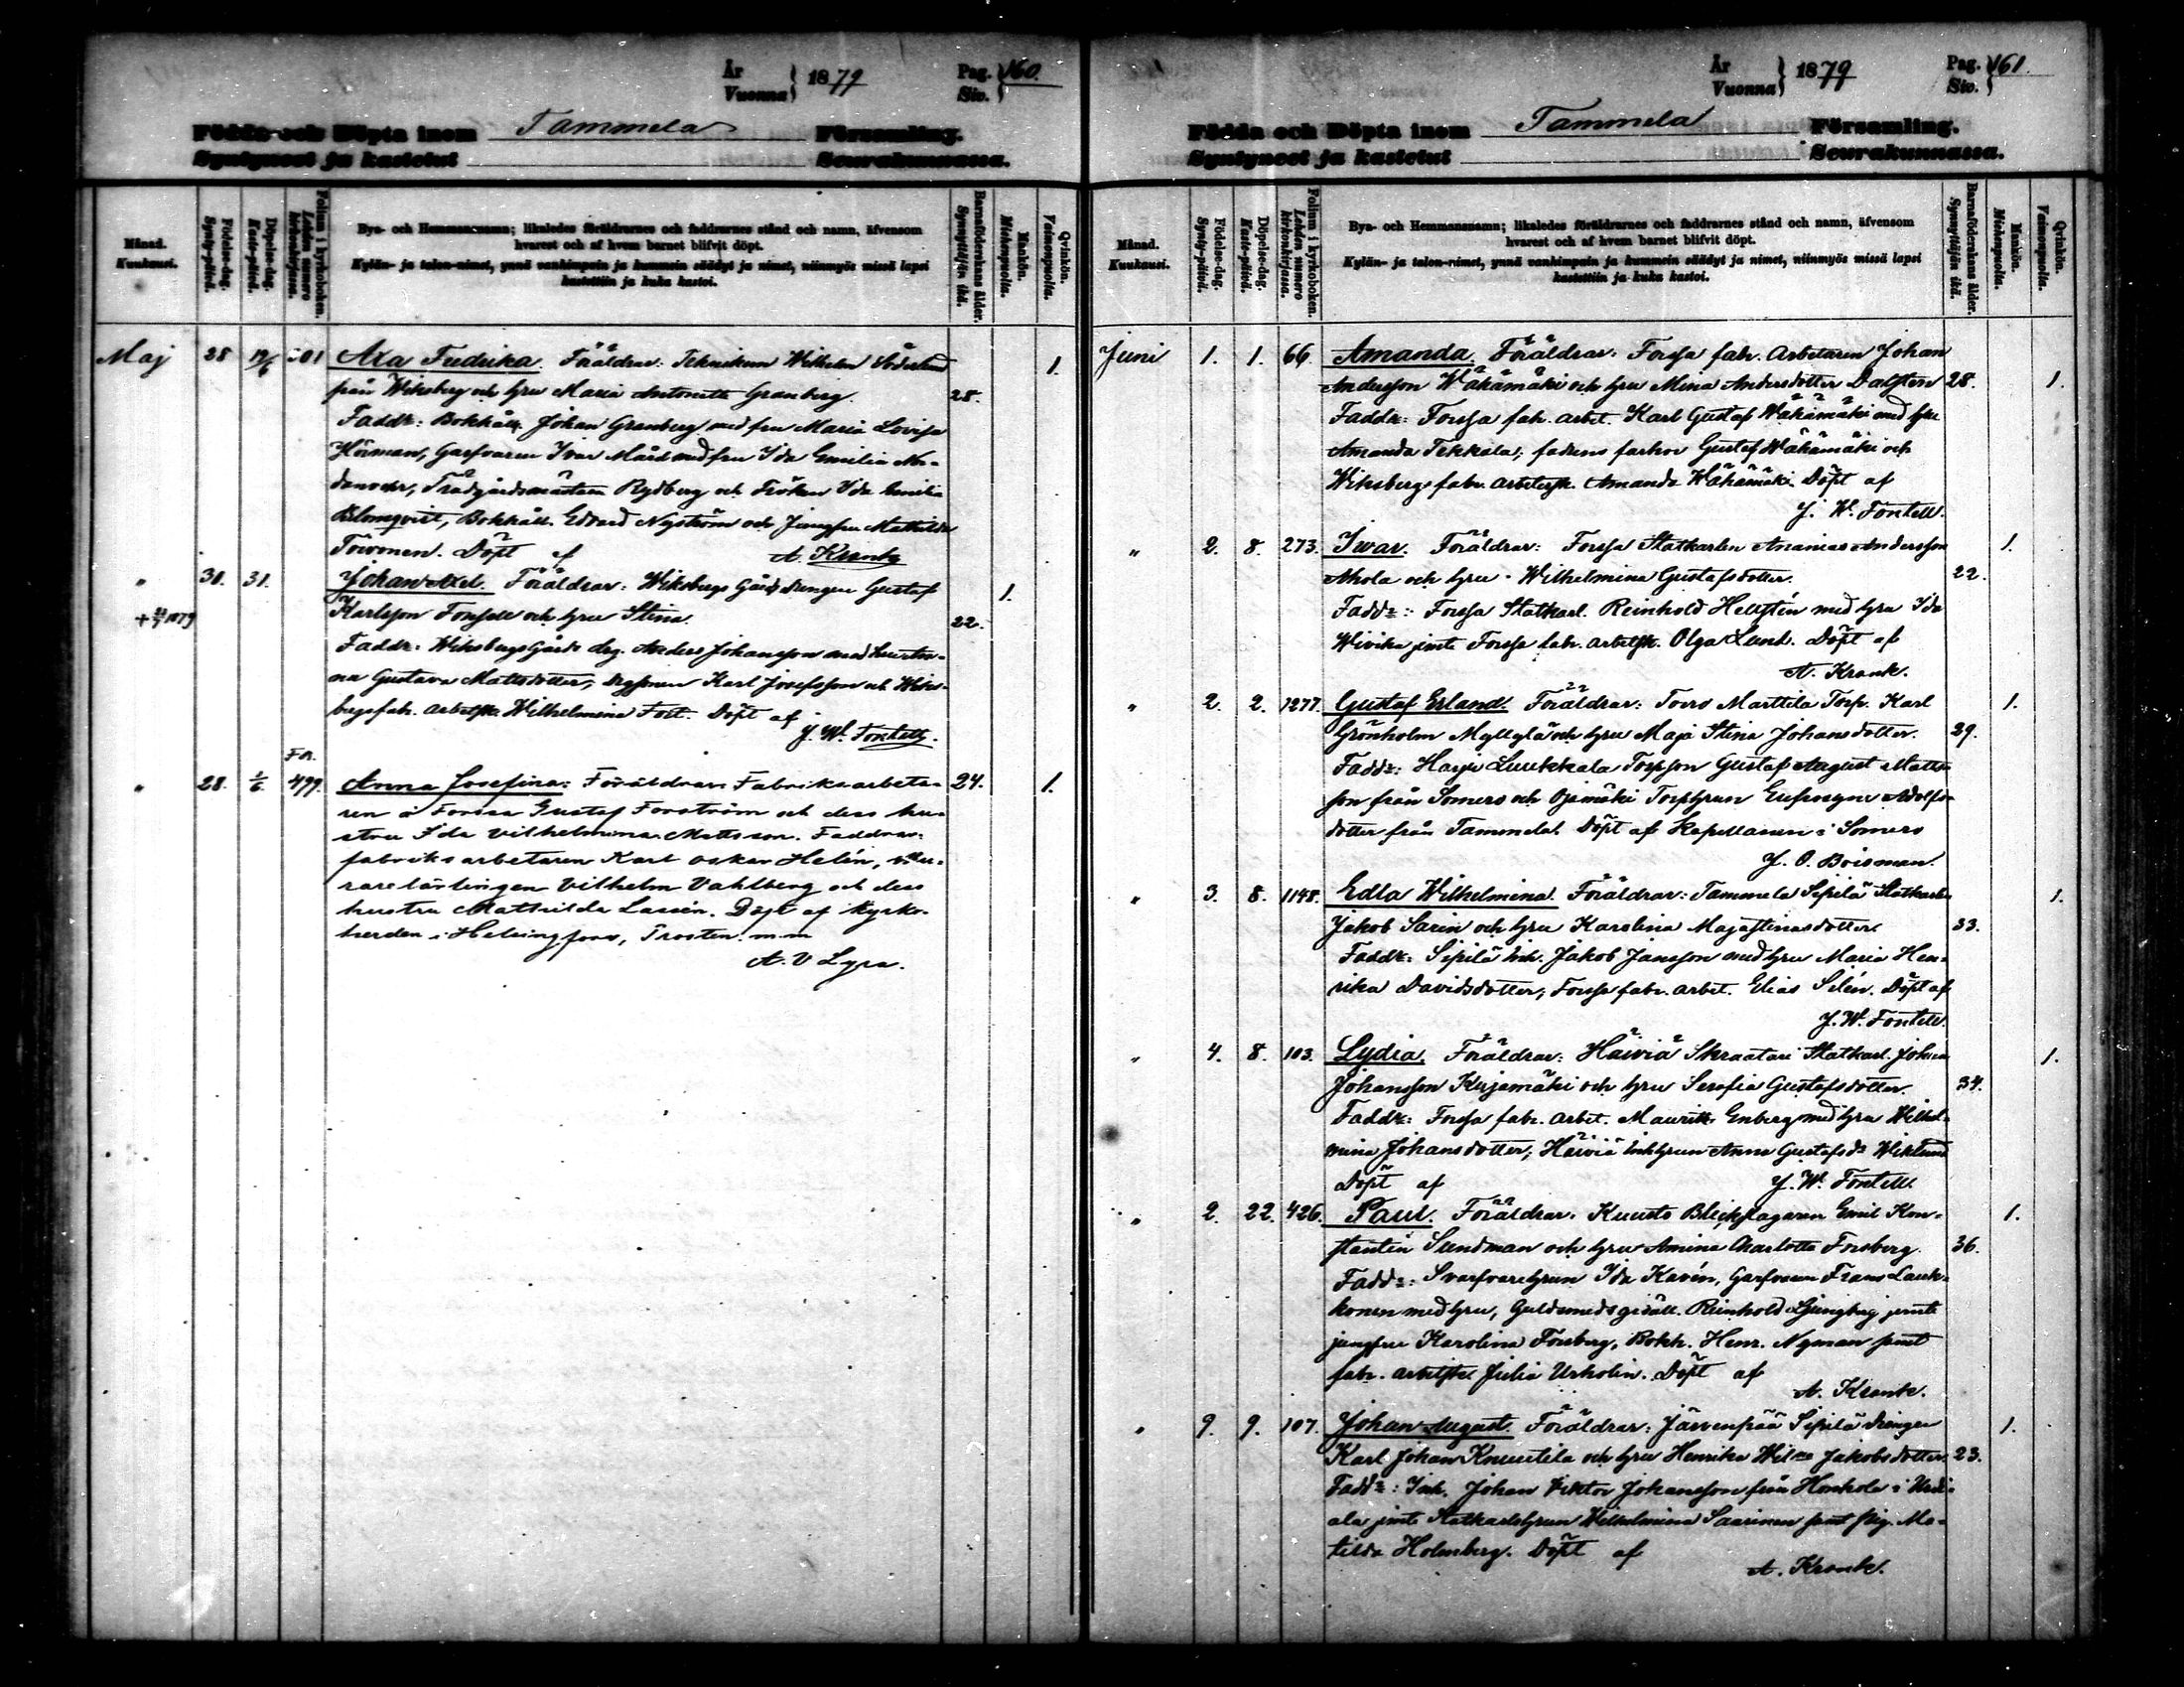 År
Vuonna } 1879
Pag.
Siv. } 160.
Födda och Döpta inom Tammela Församling.
Syntyneet ja kastetut Seurakunnassa.
Månad.
Kuukausi.
Födelse-dag.
Synty-päivä.
Döpelse-dag.
Kaste-päivä.
Folium i kyrkoboken.
Lehden numero kirkonkirjassa.
Bya- och Hemmansnamn; likaledes föräldrarnes och faddrarnes stånd och namn, äfvensom
hvarest och af hvem barnet blifvit döpt.
Kylän- ja talon-nimet, ynnä vanhimpain ja kummein säädyt ja nimet, niinmyös missä lapsi
kastettiin ja kuka kastoi.
Barnaföderskans ålder.
Synnyttäjän ikä.
Mankön.
Miehenpuolia.
Qvinkön.
Vaimonpuolia.
Maj 28 12/6 Axa Fredrika. Föräldrar: Teknikern Wilhelm Söderlund 1.
från Wiksberg och hru Maria Antonette Granberg. 28.
Faddr: Bokhåll. Johan Granberg med fru Maria Lovisa
Hörman, Garfvaren Ivar Mård med fru Ida Emilia
Trädgårdsmästaren Rydberg och Fröken Ida Emilia
Blomqvist, Bokhåll. Edvard Nyström och Jungfru Mathilda
Toivonen. Döpt af A. Krank
" 31. 31. Johan Axel. Föräldrar: Wiksbergs Gårds drengen Gustaf 1.
Karlsson Fonsell och hru Stina. 22.
Faddr: Wiksbergs Gårds drg. Anders Johansson med hustru
Gustava Mattsdotter, Karl Josefsson och Wiks-
bergs fabr. arbetsk. Wilhelmina Fort. Döpt af
J. W. Fontell.
" 28. 1/6 Fa. 499. Anna Josefina: Föräldrar: Fabriksarbeta- 24. 1.
ren i Forssa Gustaf Forström och dess hu-
stru Ida Vilhelmina Mattsson. Faddrar:
fabriksarbetaren Karl Oskar Helén,
rarelärlingen Vilhelm Vahlberg och dess
hustru Mathilda Lassén. Döpt af kyrko-
herden i Helsingfors, Trosten. m m
A. V Lyra.
År
Vuonna } 1879
Pag.
Siv. } 161.
Födda och Döpta inom Tammela Församling.
Syntyneet ja kastetut Seurakunnassa.
Månad.
Kuukausi.
Födelse-dag.
Synty-päivä.
Döpelse-dag.
Kaste-päivä.
Folium i kyrkoboken.
Lehden numero kirkonkirjassa.
Bya- och Hemmansnamn; likaledes föräldrarnes och faddrarnes stånd och namn, äfvensom
hvarest och af hvem barnet blifvit döpt.
Kylän- ja talon-nimet, ynnä vanhimpain ja kummein säädyt ja nimet, niinmyös missä lapsi
kastettiin ja kuka kastoi.
Barnaföderskans ålder.
Synnyttäjän ikä.
Mankön.
Miehenpuolia.
Qvinkön.
Vaimonpuolia.
Juni 1. 1. 66. Amanda. Föräldrar: Forssa fabr. Arbetaren Johan
Andersson Wähämäki och hru Mina Andersdotter Dalsten 28. 1.
Faddr: Forssa fabr. arbet. Karl Gustaf Wähämäki med hru
Amanda Tekkala; fadrens farbror Gustaf Wähämäki och
Wiksbergs fabr. arbetersk. Amanda Wähämäki. Döpt af
J. W. Fontell.
" 2. 8. 273. Iwar. Föräldrar: Forssa Statkarlen Ananias Andersson 1.
Ahola och hru Wilhelmina Gustafsdotter. 22.
Faddr: Forssa Statkarl. Reinhold Hellstén med hru Ida
Wivika jemte Forssa fabr. arbetsk. Olga Lund. Döpt af
A. Krank.
" 2. 2. 1277. Gustaf Erland. Föräldrar: Torro Marttila Torp. Karl 1.
Grönholm Myllylä och hru Maja Stina Johansdotter. 29.
Faddr: Harju Luukkala Torpson Gustaf August Matts-
son från Somero och Ojamäki Torphrun Eufrosyne Adolfs-
dotter från Tammela. Döpt af Kapellanen i Somero
J. O. Boisman.
" 3. 8. 1148. Edla Wilhelmina. Föräldrar: Tammela Sipilä Statkarlen 1.
Jakob Sarin och hru Karolina Majastinasdotter. 33.
Faddr: Sipilä Inh. Jakob Jansson med hru Maria Hen-
rika Davidsdotter; Forssa fabr. arbet. Elias Silén. Döpt af
J. W. Fontell.
" 4. 8. 103. Lydia. Föräldrar: Häiviä Skraatari Statkarl. Johan 1.
Johansson Kujamäki och hru Serafia Gustafsdotter. 34.
Faddr: Forssa fabr. arbet. Mauritz Enberg med hru Wilhel-
mina Johansdotter; Häiviä Inhhrun Anna Gustafsdr Wiklund
Döpt af J. W. Fontell.
" 2. 22. 426. Paul. Föräldrar: Kuusto Bleckslagaren Emil Kon- 1.
stantin Sundman och hru Amina Charlotta Forsberg. 36.
Faddr: Svarfvarehrun Ida Kavén, Garfvaren Frans Lauk-
konen med hru, Guldsmedsgesäll. Reinhold Ljungberg jemte
jungfru Karolina Forsberg, Bokh. Henr. Nyman samt
fabr. arbetsk. Julia Urholin. Döpt af
A. Krank.
" 9. 9. 107. Johan August. Föräldrar: Järvenpää Sipilä Drengen 1.
Karl Johan Knuutila och hru Henrika Wilna Jakobsdotter 23.
Faddr: Inh. Johan Viktor Johansson från Honhola i Urdi-
ala jemte Statkarlshrun Wilhelmina Saarinen samt pig. Ma-
tilda Holmberg. Döpt af
A. Krank.